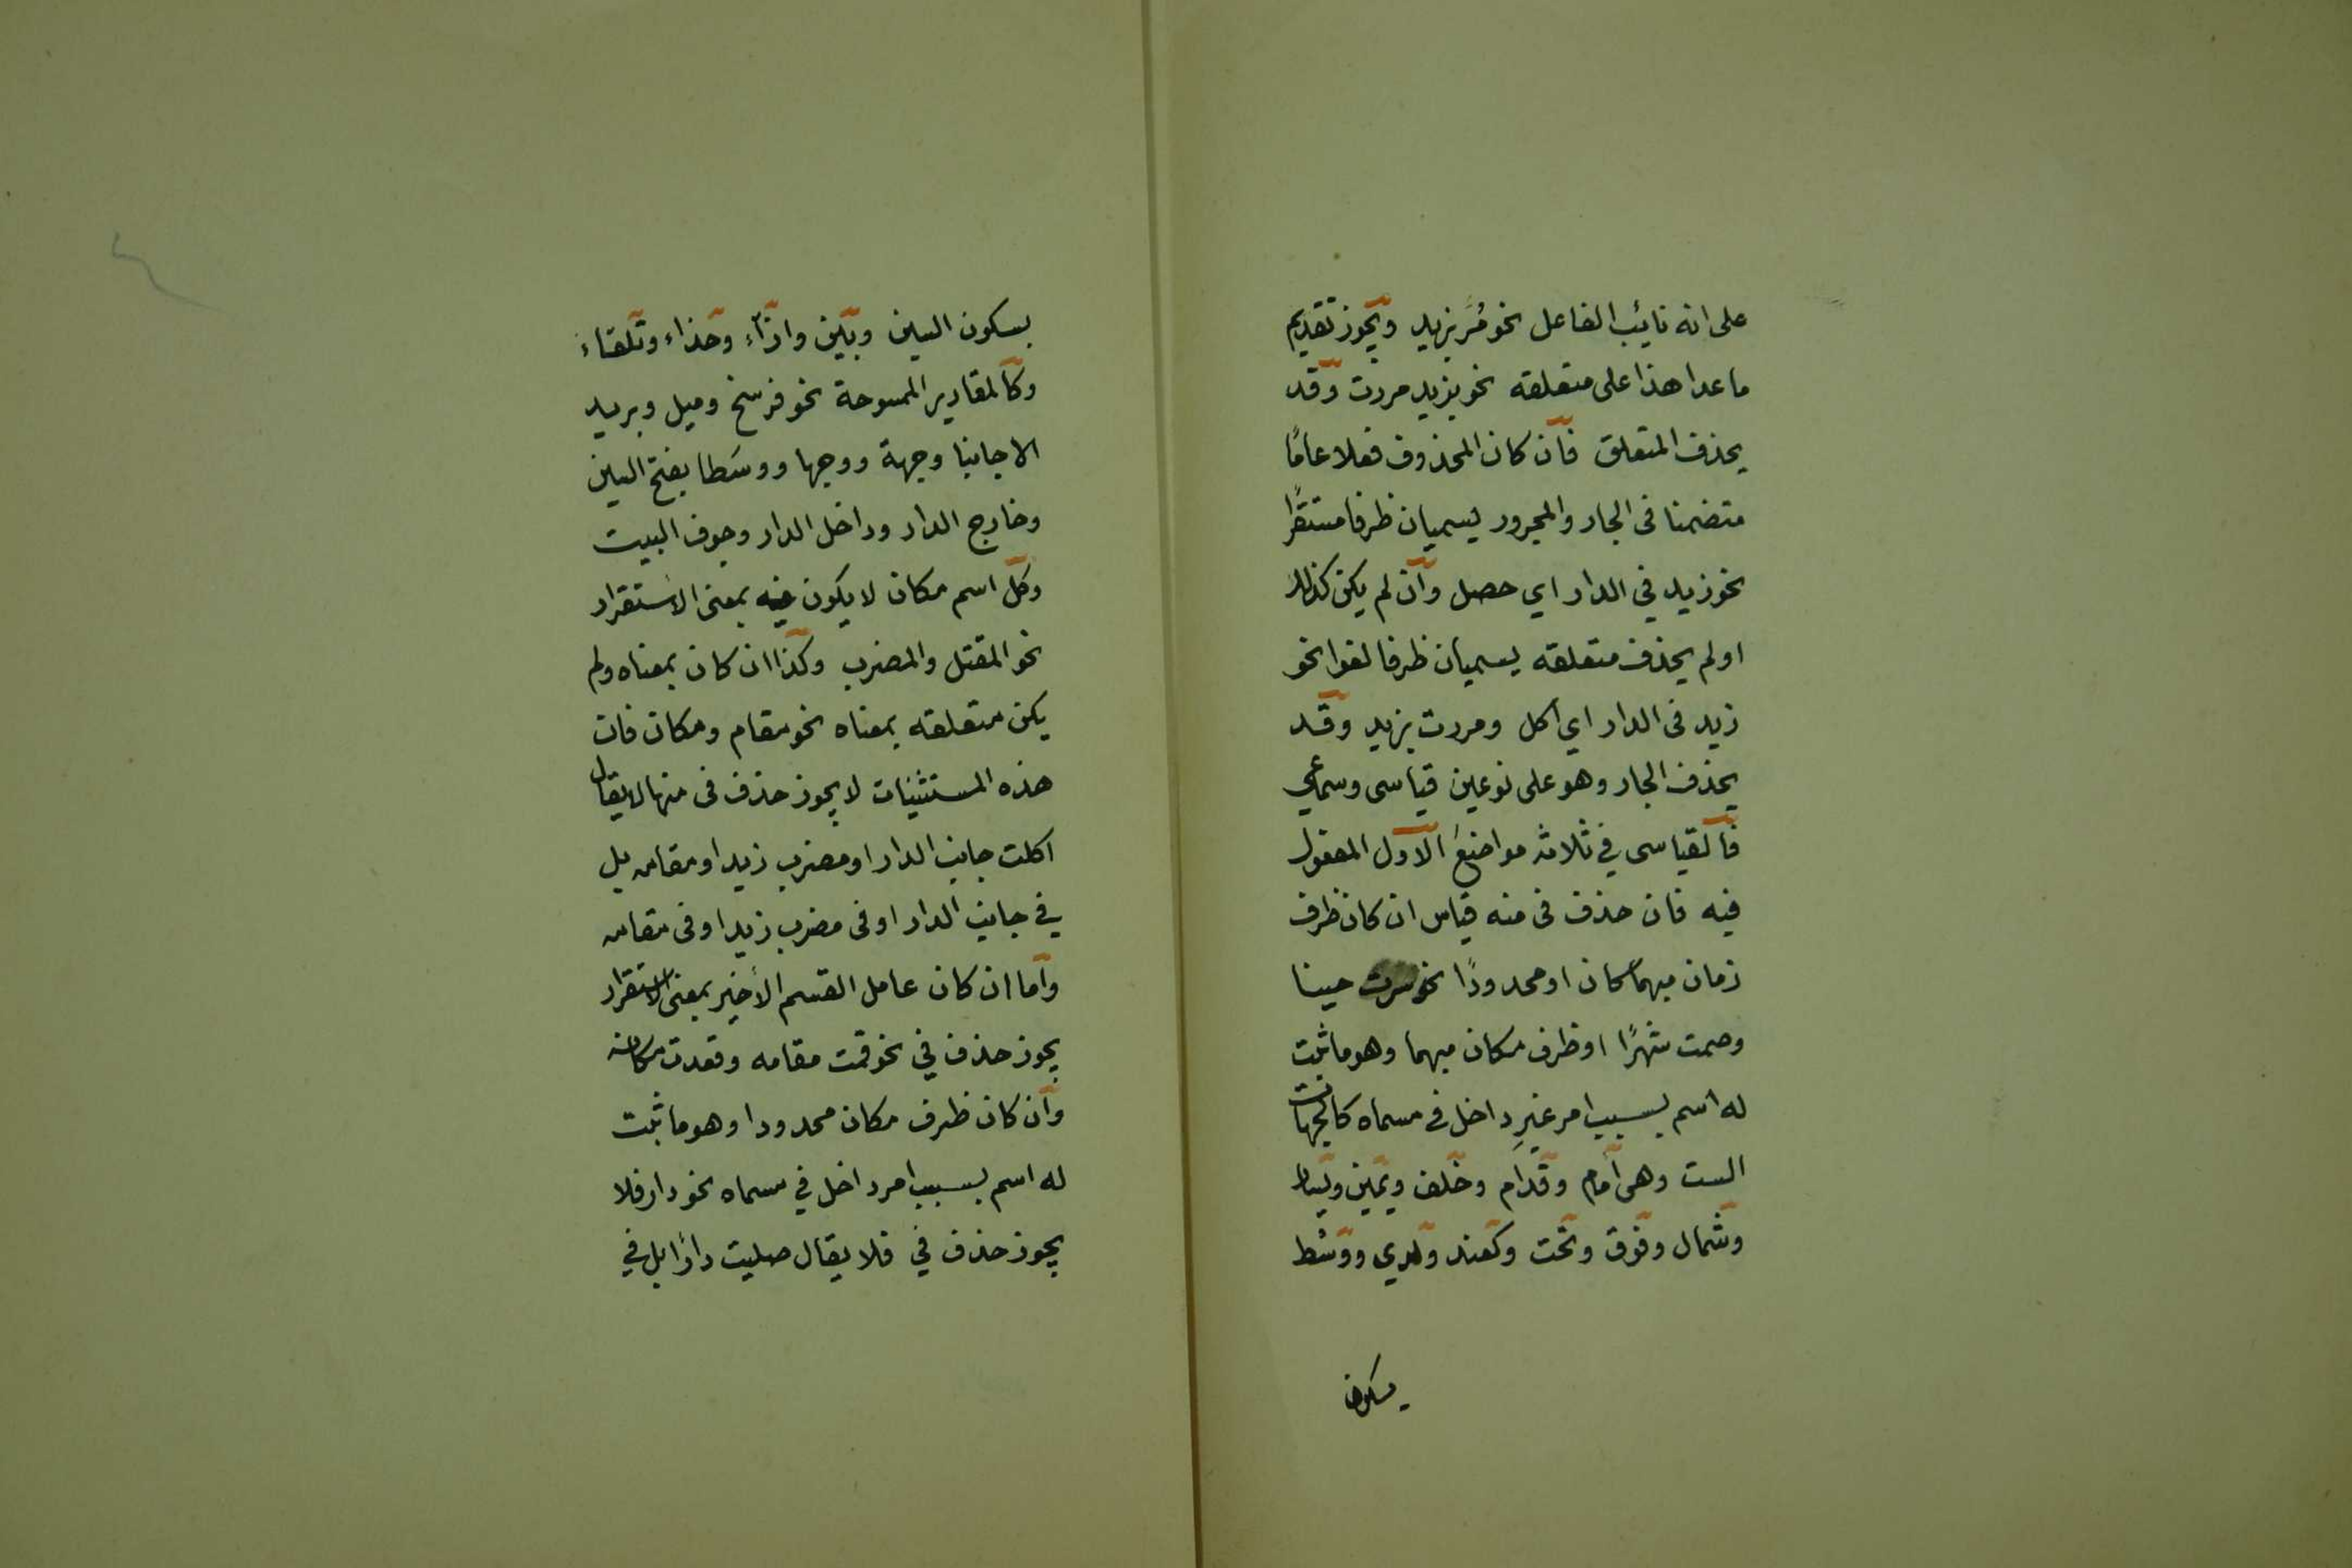 على انه نائب الفاعل نحو مُرَّ بزيد ويجوز تقديم
ما عدا هذا على متعلقه نحو بزيد مررت وقد
يحذف المتعلق فان كان المحذوف فعلا عامًا
متضمنا فى الجار والمجرور يسميان ظرفا مستقرًا
نحو زيد في الدار اي حصل وان لم يكن كذلك
او لم يحذف متعلقه يسميان ظرفا لغوا نحو
زيد فى الدار اي اكل ومررت بزيد وقد
يحذف الجار وهو على نوعين قياسى وسماعي
فالقياسى في ثلاثة مواضع الاول المفعول
فيه فان حذف فى منه قياس ان كان ظرف
زمان مبهما كان او محدودًا نحو سرت حينا
وصمت شهرًا او ظرف مكان مبهما وهو ما ثبت
له اسم بسبب امر غيرِ داخل فى مسماه كالجهات
الست وهى أمام وقدام وخلف ويمين ويسار
وشمال وفوق وتحت وكعند ولدي ووسْط
بسكون
بسكون السين وبين وازآء وحذاء وتلقاء
وكالمقادير الممسوحة نحو فرسخ وميل وبريد
الا جانبا وجهة ووجها ووسَطا بفتح السين
وخارج الدار وداخل الدار وجوف البيت
وكل اسم مكان لا يكون فيه بمعنى الاستقرار
نحو المقتل والمضرب وكذا ان كان بمعناه ولم
يكن متعلقه بمعناه نحو مقام ومكان فان
هذه المستثنيات لا يجوز حذف فى منها لا يقال
اكلت جانب الدار او مضرب زيد او مقامه بل
في جانب الدار او فى مضرب زيد او فى مقامه
واما ان كان عامل القسم الأخير بمعنى الاستقرار
يجوز حذف في نحو قمت مقامه وقعدت مكانه
وان كان ظرف مكان محدودا وهو ما ثبت
له اسم بسبب امر داخل في مسماه نحو دار فلا
يجوز حذف في فلا يقال صليت دارًا بل في